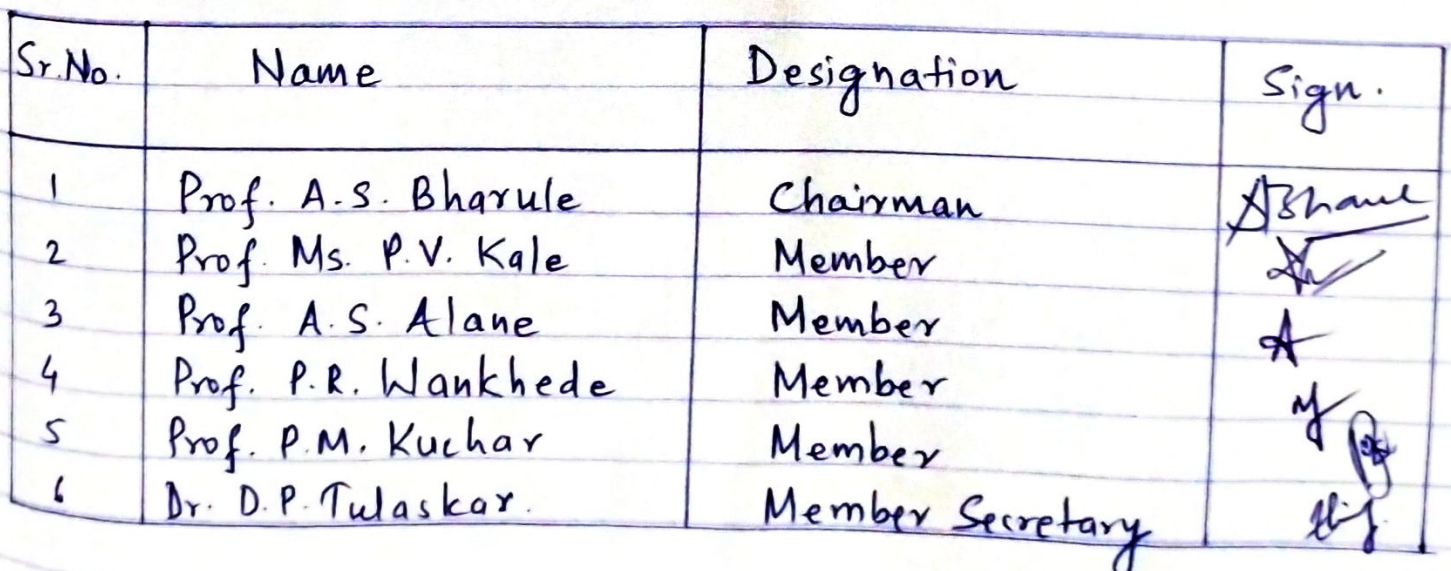 Sr.No. Name Designation Sign.
1 Prof. A.S. Bharule Chairman
2 Prof. Ms. P.V. Kale Member
3 Prof. A.S. Alane Member
4 Prof. P.R. Wankhede Member
5 Prof. P.M. Kuchar Member
6 Dr. D.P. Tulaskar. Member Secretary